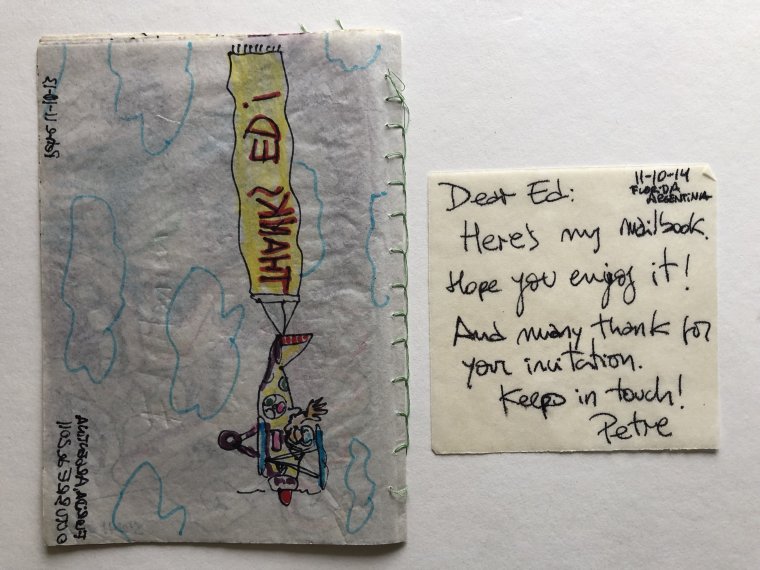 THANKS ED!
11-10-14
FLORIDA
ARGENTINA
Dear Ed:
Here's my mailbook.
Hope you enjoy it!
And many thank for
your invitation.
Keeps in touch!
Petre